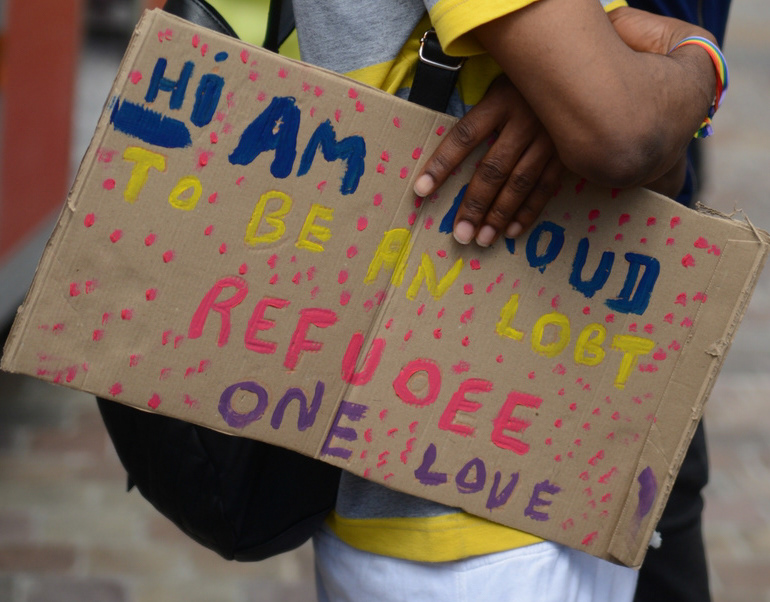 Hi AM PROUD
TO BE AN LGBT
REFUGEE
ONE LOVE